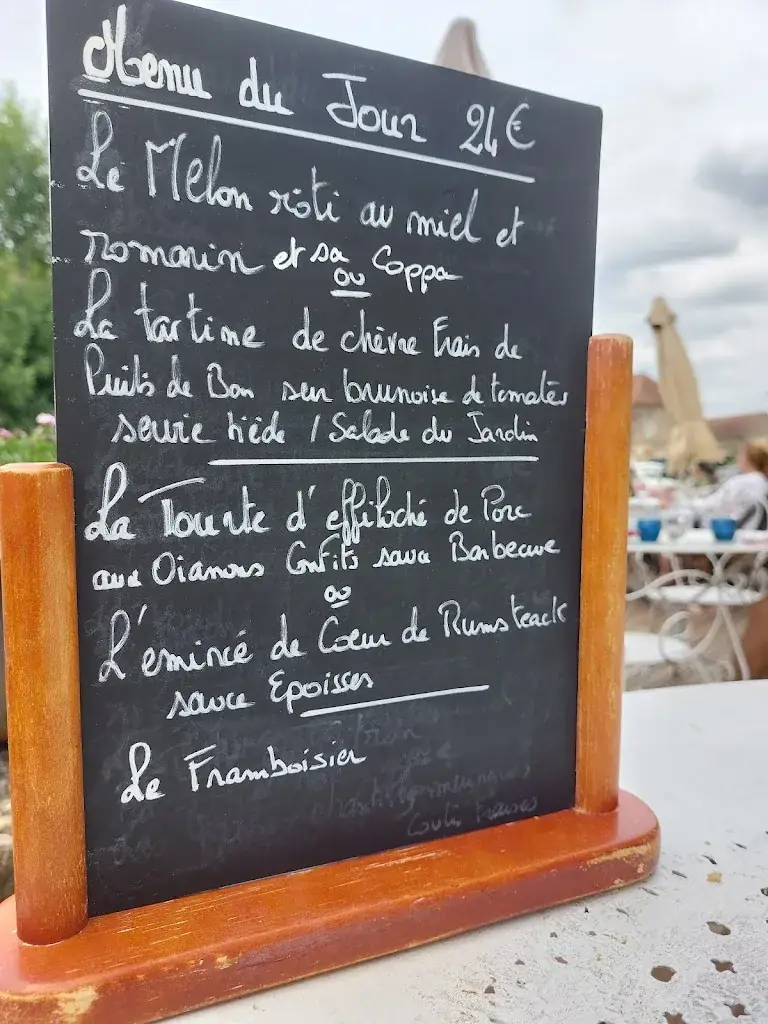 Menu du Jour 24€
Le Melon rôti au miel et
romarin et sa Coppa
ou
La tartine de chèvre Frais de
Puits de Bon sur brunoise de tomates
servie tiède / Salade du Jardin
La Tourte d'effiloché de Porc
aux Oignons Confits sauce Barbecue
ou
L'émincé de Coeur de Rumsteack
sauce Epoisses
Le Framboisier